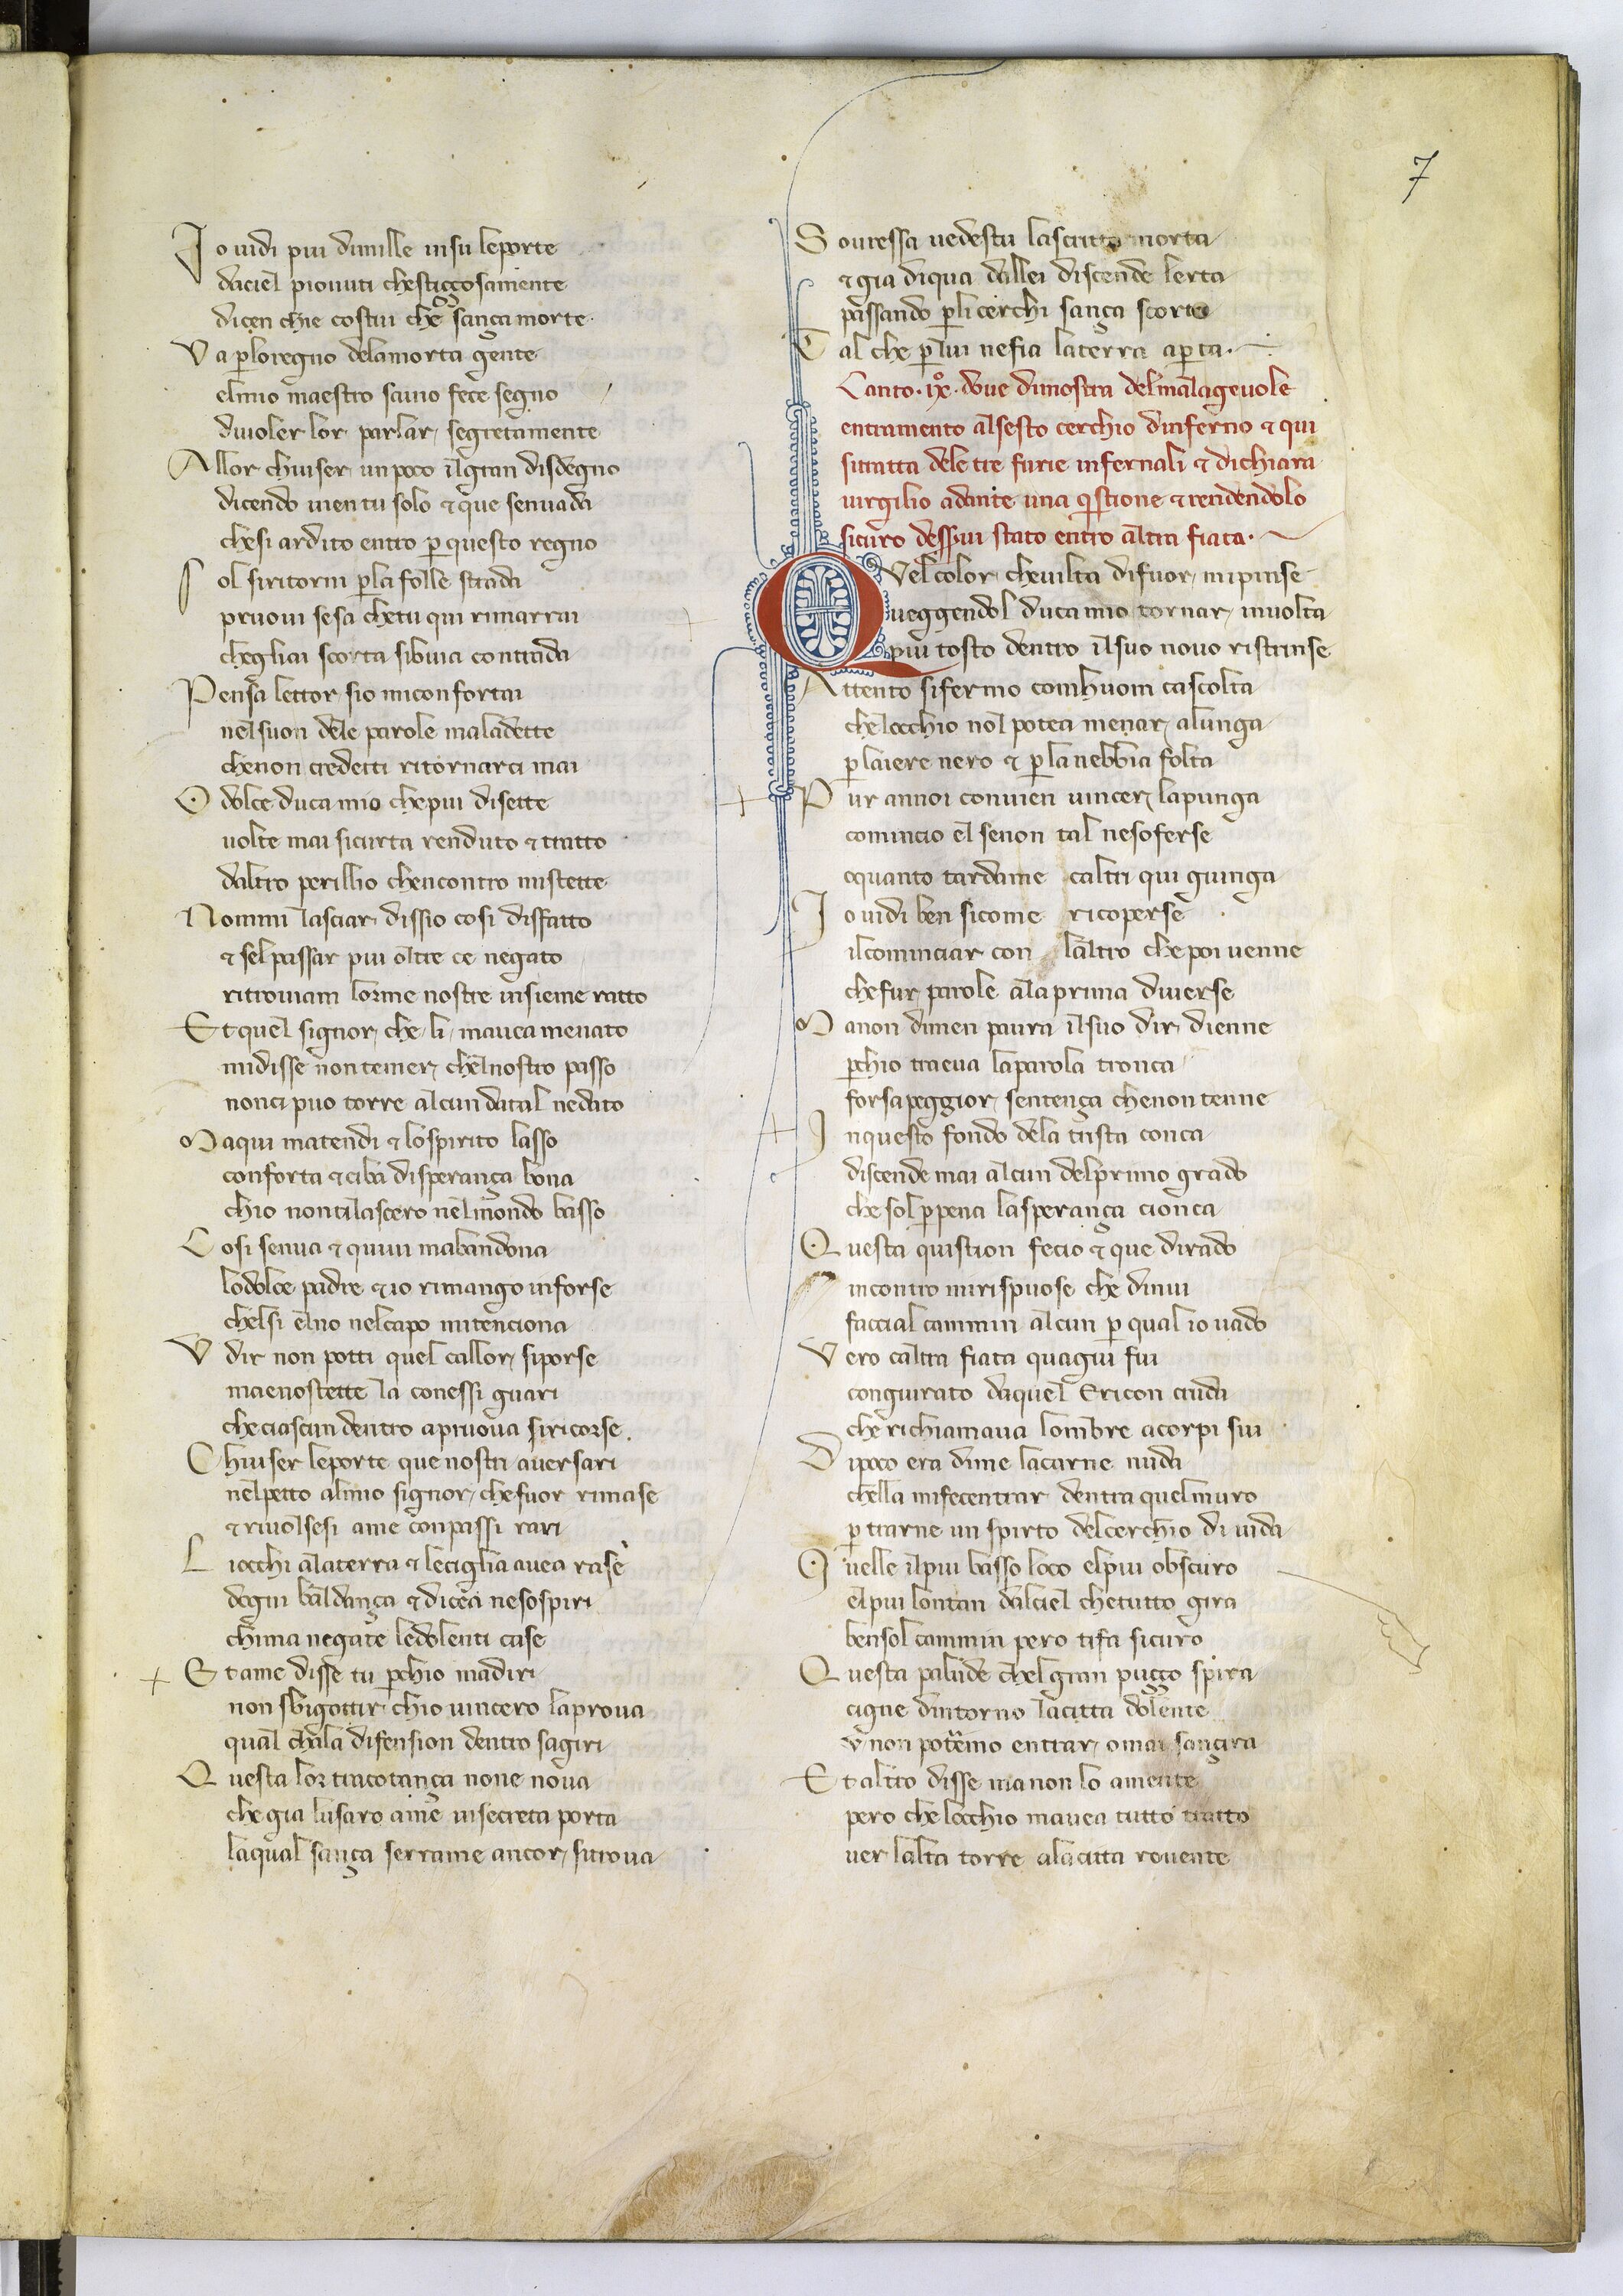 7
Io uidi piu dimille insu leporte
daciel piouuti chestiççosamente
dicen chie costui che sança morte
Va ꝑloregno delamorta gente
elmio maestro sauio fece segno
diuoler lor parlar segretamente
Allor chiuser unpoco ilgran disdegno
dicendo uien tu solo ⁊ que senuada
chesi ardito entro ꝑ questo regno
Sol siritorni ꝑla folle strada
pruoui sesa chetu qui rimarrai
chegliai scorta sibuia contrada
Pensa lettor sio miconfortai
nelsuon dele parole maladette
chenon credetti ritornarci mai
O dolce duca mio chepiu disette
uolte mai sicurta renduto ⁊ tratto
daltro perillio chencontro mistette
Nommi lasciar dissio cosi disfatto
⁊ selpassar piu oltre ce negato
ritrouiam lorme nostre insieme ratto
Et quel signor che li mauea menato
midisse non temer chelnostro passo
nonci puo torre alcun datal nedato
Maqui matendi ⁊ lospirito lasso
conforta ⁊ ciba disperança bona
chio nontilascero nelmondo basso
Cosi senua ⁊ quiui mabandona
lodolce padre ⁊ io rimango inforse
chelsi elno nelcapo mitenciona
Vdir non potti quel callor siporse
maenostette la conessi guari
checiascun dentro apruoua siricorse
Chiuser leporte que nostri auersari
nelpetto almio signor chefuor rimase
⁊ riuolsesi ame conpassi rari
Liocchi alaterra ⁊ leciglia auea rase
dogni baldança ⁊ dicea nesospiri
chima negate ledolenti case
Et ame disse tu ꝑchio madiri
non sbigottir chio uincero laproua
qual chala difension dentro sagiri
Questa lor tracotança none noua
chegia lusaro ame insecreta porta
laqual sança serrame ancor sitroua
Souressa uedestu lascritta morta
⁊ gia diqua dallei discende lerta
passando ꝑlicerchi sança scorta
Tal che ꝑlui nefia laterra aꝑta
Canto .ix. doue dimostra delmalageuole
entramento alsesto cerchio dinferno ⁊ qui
sitratta dele tre furie infernali ⁊ dichiara
uirgilio adante una q̄stione ⁊ rendendolo
sicuro desserui stato entro altra fiata.
QVel color cheuilta difuor mipinse
ueggendol duca mio tornar inuolta
piu tosto dentro ilsuo nouo ristrinse
Attento sifermo comhuom cascolta
chelocchio nol potea menar alunga
ꝑlaiere nero ⁊ ꝑlanebbia folta
Pur annoi conuien uincer lapunga
comincio el senon tal nesoferse
oquanto tardame caltri qui giunga
Io uidi ben sicome ricoperse
ilcominciar con laltro chepoi uenne
chefur parole alaprima diuerse
Manon dimen paura ilsuo dir dienne
ꝑchio traeua laparola tronca
forsapeggior sentença chenon tenne
Inquesto fondo dela trista conca
discende mai alcun delprimo grado
chesol ꝑpena lasperança cionca
Questa quistion fecio ⁊ que dirado
incontro mirispuose che dinui
faccial cammin alcun ꝑ qual io uado
Vero caltra fiata quagiu fui
congiurato daquel Ericon cruda
cherichiamaua lombre acorpi sui
Dipoco era dime lacarne nuda
chella mifecentrar dentra quelmuro
ꝑ trarne un spirto delcerchio di iuda
Quelle ilpiu basso loco elpiu obscuro
elpiu lontan dalciel chetutto gira
bensol cammin pero tifa sicuro
Questa palude chelgran puçço spira
cigne dintorno lacitta dolente
u non potemo entrar omai sançira
Et altro disse manon lo amente
pero che locchio mauea tutto tratto
uer lalta torre alacitta rouente